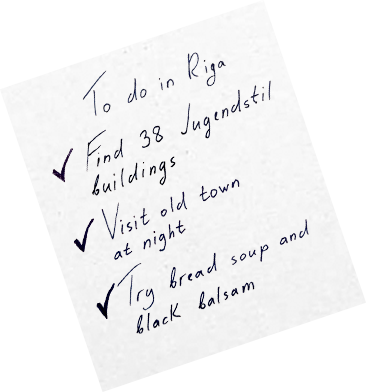 To do in Riga
✓ Find 38 Jugendstil
buildings
✓ Visit old town
at night
✓ Try bread soup and
black balsam